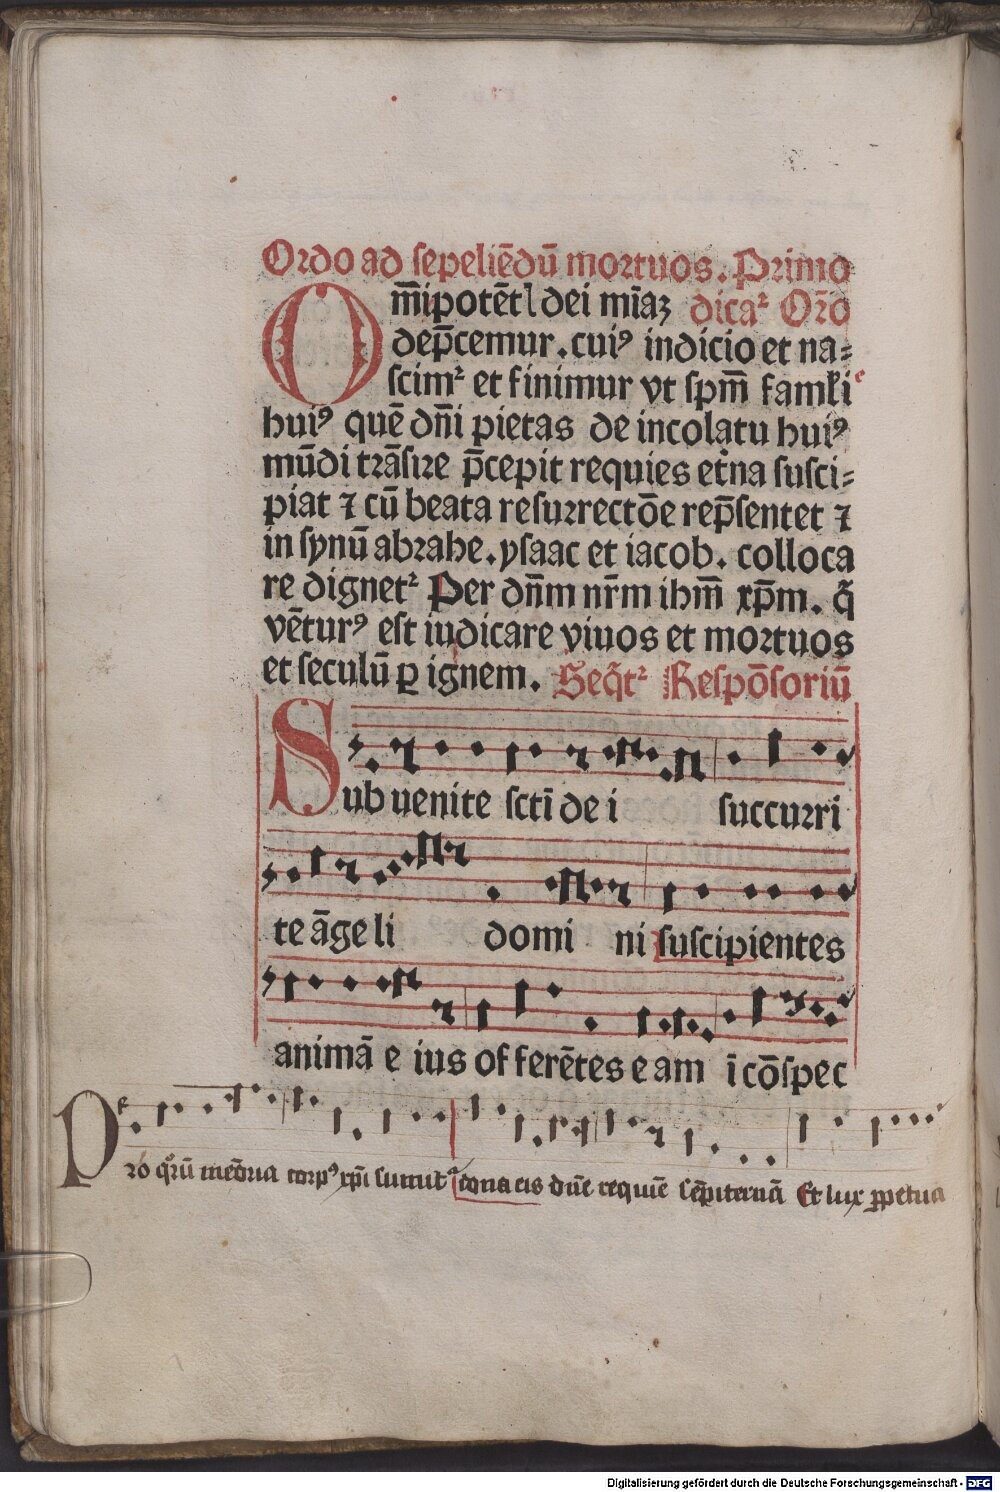 Ordo ad sepeliēdū mortuos. Primo
Om̄ipotētꝭ dei mīaꝫ dicaꝛ Orō
dep̄cemur. cuiꝰ indicio et na⸗
scimꝛ et finimur vt spm̄ famłi e
huiꝰ quē dn̄i pietas de incolatu huiꝰ
mūdi trāsire p̄cepit requies et̓na susci⸗
piat ⁊ cū beata resurrectōe rep̄sentet ⁊
in synū abrahe. ysaac et iacob. colloca
re dignetꝛ Per dn̄m nr̄m ihm̄ xp̄m. q̄
vēturꝰ est iudicare viuos et mortuos
et seculū ꝑ ignem. Seq̄tꝛ Respōsoriū
Sub uenite sctī de i succurri
te āge li domi ni suscipientes
animā e ius of ferētes e am ī cōspec
Pro qͦrū mēōria corpꝰ xp̄i sumitꝛ dona eis dn̄e requiē sēp̄iternā Et lux ꝑpetua
Digitalisierung gefördert durch die Deutsche Forschungsgemeinschaft - DFG